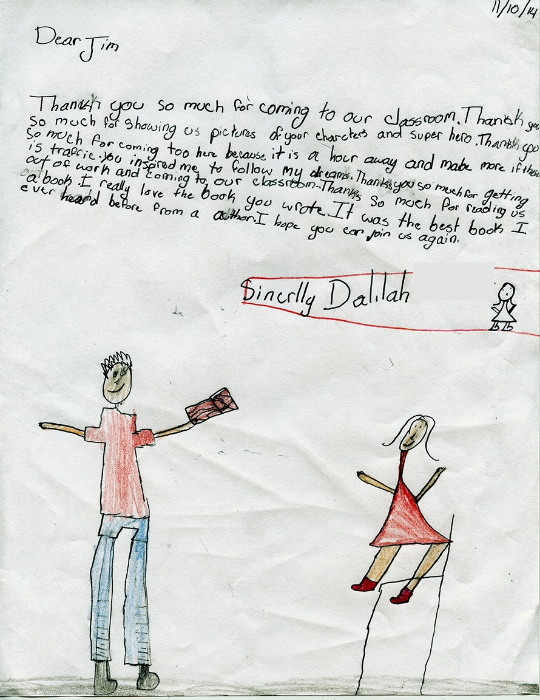 11/10/14
Dear Jim
Thankk you so much for coming to our classroom. Thankk you
so much for showing us pictures of your charcters and super hero. Thankk you
so much for coming too here because it is a hour away and make more if there
is traffic. You inspired me to follow my dreams. Thankk you so much for getting
out of work and coming to our classroom. Thanks so much for reading us
a book I really love the book you wrote. It was the best book I
ever heard before from a author. I hope you can join us again.
Sincrlly Dalilah